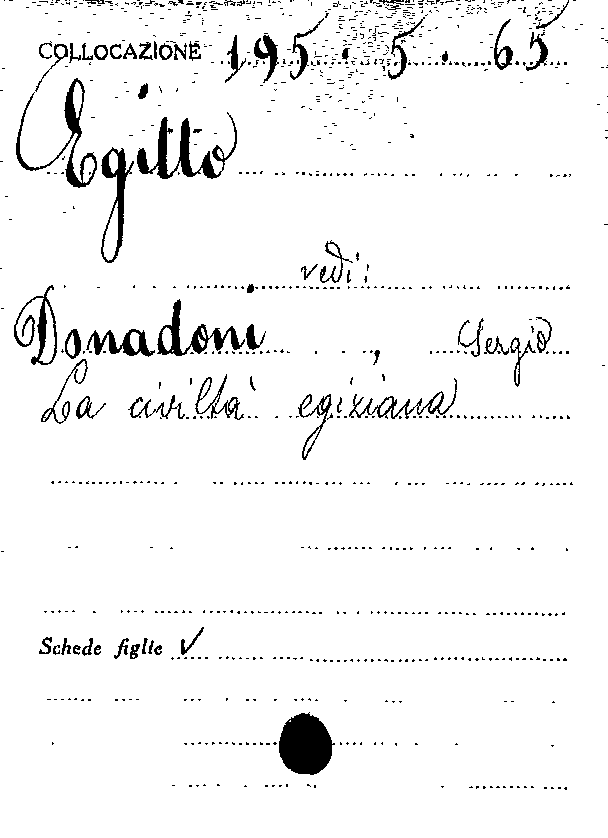 COLLOCAZIONE 195.5.65
Egitto
vedi:
Donadoni, Sergio
La civiltà egiziana
Schede figlie ✓